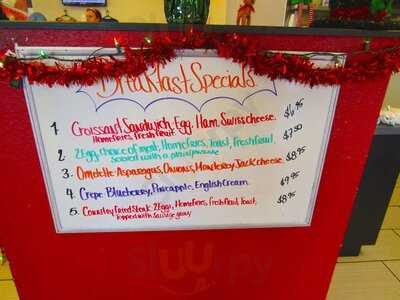 Breakfast Specials
1 Croissant Sandwich, Egg, Ham, Swiss cheese. $6.95
Homefries, Fresh fruit
2 2 Egg, choice of meat, Homefries, Toast, Fresh fruit, $7.50
Served with a plain pancake
3. Omelette-Asparagus, Onions, Monterey Jack cheese $8.95
4. Crepe Blueberry, Pineapple, English Cream. $9.95
5. Country Fried Steak-2 Eggs, Homefries, Fresh fruit, Toast, $8.95
Topped with Sausage gravy
sluurpy